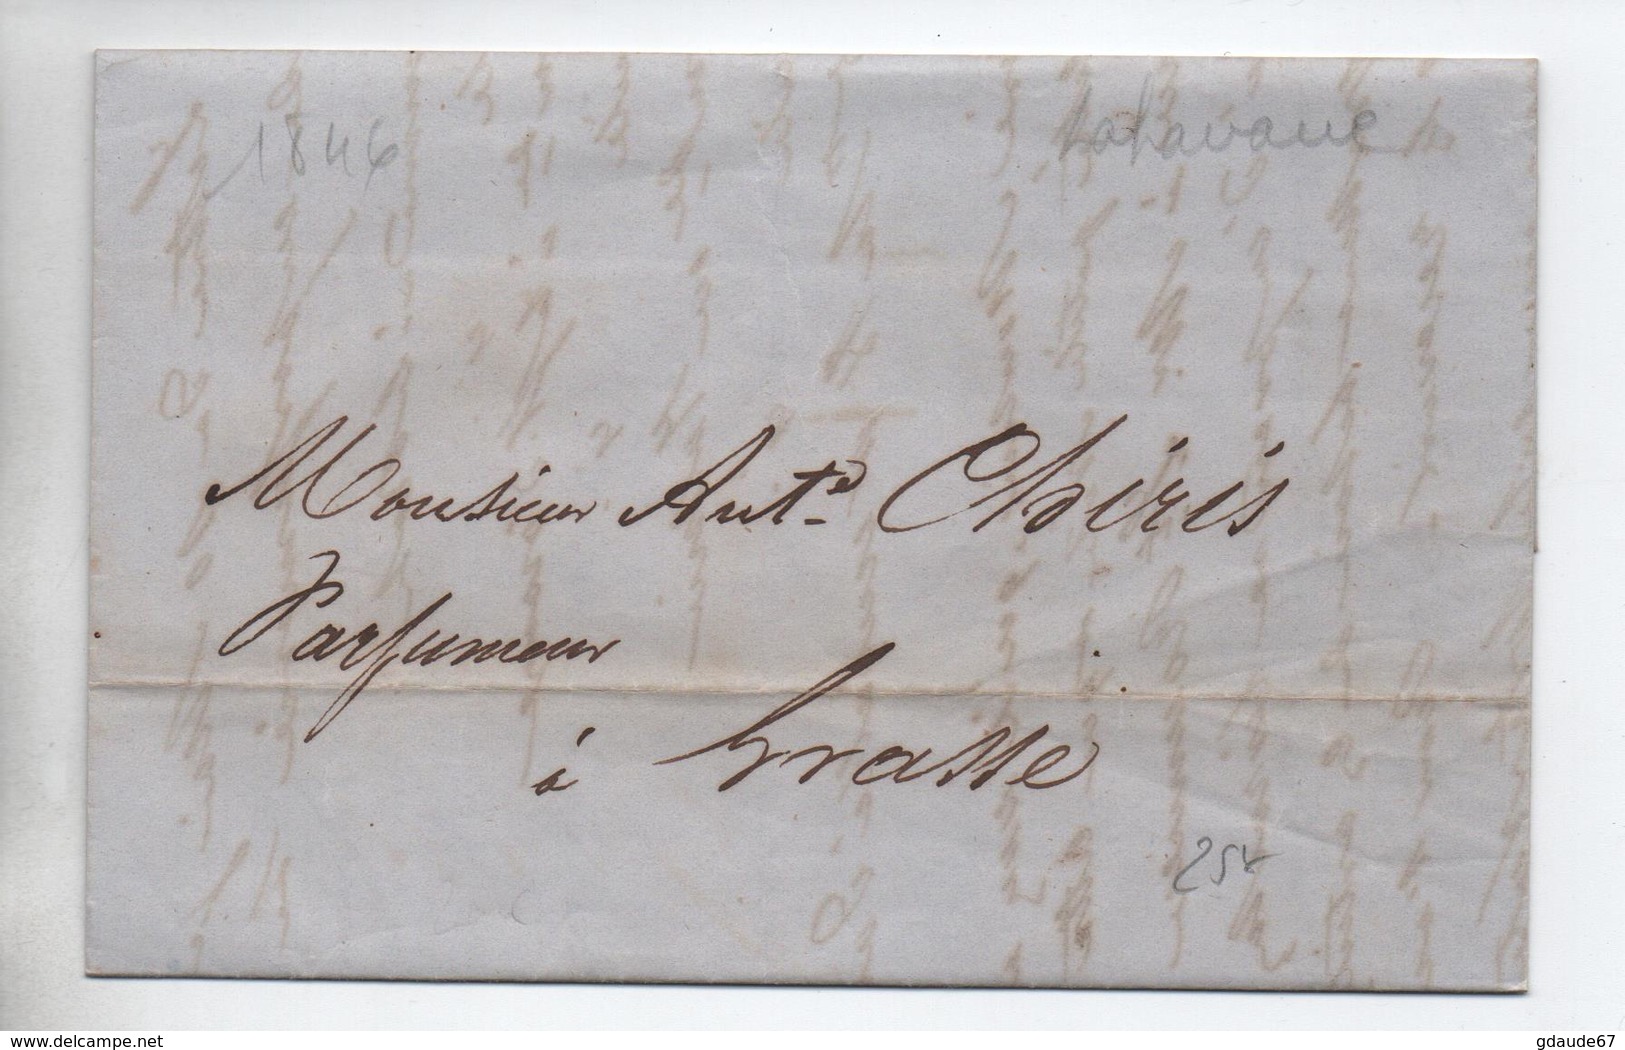 1846
La havane
Monsieur Ant.e Chiris
Parfumeur
à Grasse
25
delcampe.net
gdaude67